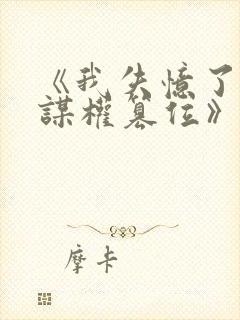 《我失憶了
謀權篡位》
摩卡